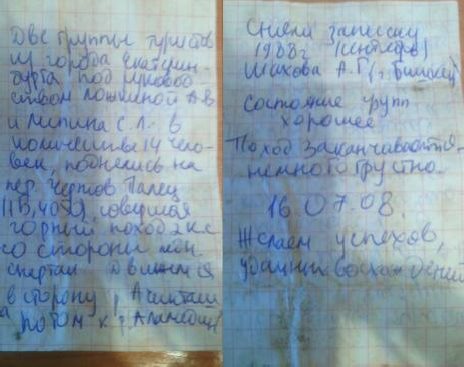 Две группы туристов
из города Екатерин-
бурга под руковод
ством Лошкиной А В
и Липина С.Л. в
количестве 14 чело-
век, поднялись на
пер. Чертов Палец
(1Б, 4050), совершая
горный поход 2 к.с
со стороны
спартак Движемся
в сторону р. Ачикташ
а потом к р. Аламедин
Сняли записку
1988г (сентябрь)
Шахова А.Г (г. Бишкек)
Состояние групп
хорошее
Поход заканчивается
немного грустно.
16.07.08.
Желаем успехов,
удачных восхождений